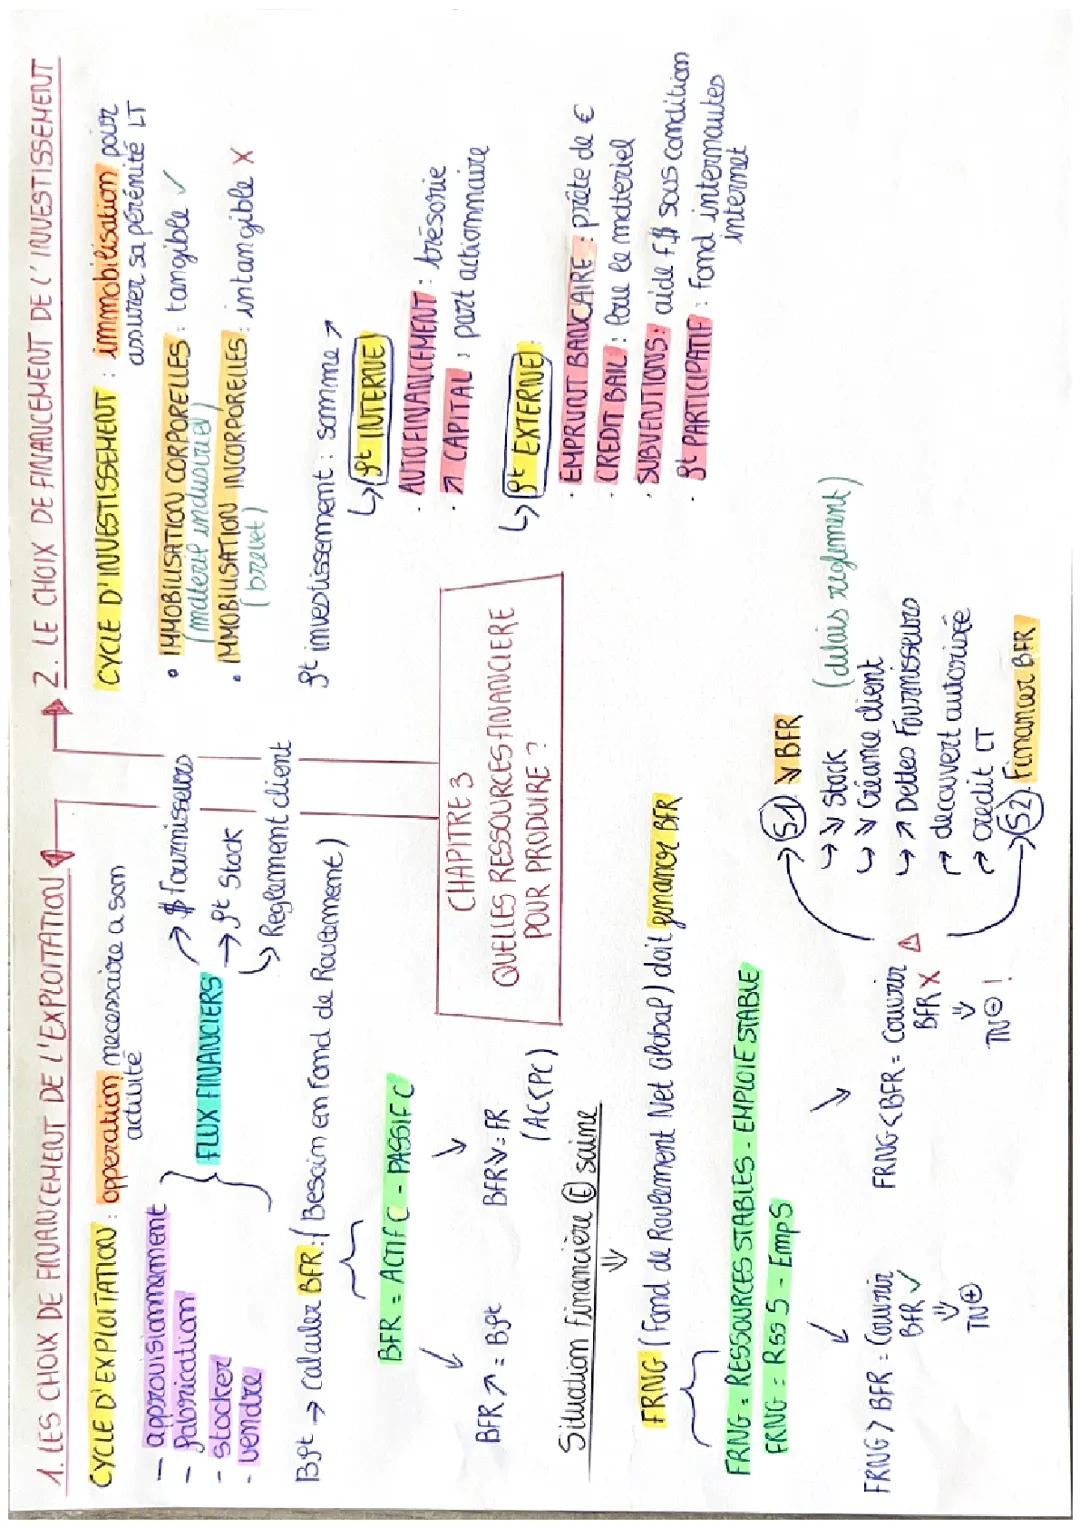 1. LES CHOIX DE FINANCEMENT DE L'EXPLOITATION
CYCLE D'EXPLOITATION : opperation necessaire a son
activité
- approvisionnement
- fabrication
- stocker
- vendre
FLUX FINANCIERS
→ $ fournisseurs
→ gt stock
↳ Reglement client
Bft → calculer BFR : (Besoin en Fond de Roulement)
BFR = ACTIF C - PASSIF C
BFR ↗ = Bft
BFR ↘ = FR
(AC<PC)
Situation financière (E) saine
⇓
FRNG (Fond de Roulement Net Global) doit financer BFR
FRNG = RESSOURCES STABLES - EMPLOIE STABLE
FRNG = RSS S - EmpS
FRNG > BFR = Couvrir
BFR ✓
⇓
TN ⊕
FRNG < BFR = Couvrir
BFR X
⇓
TN ⊖ !
S1 ↘ BFR
↳ ↘ Stock
↳ ↘ Créance client (délais reglement)
↳ ↗ Dettes Fournisseurs
découvert autorisé
credit CT
S2. Financer BFR
CHAPITRE 3
QUELLES RESSOURCES FINANCIERE
POUR PRODUIRE ?
2. LE CHOIX DE FINANCEMENT DE L'INVESTISSEMENT
CYCLE D'INVESTISSEMENT : immobilisation pour
assurer sa pérénité LT
• IMMOBILISATION CORPORELLES : tangible ✓
(materiel industriel)
• IMMOBILISATION INCORPORELLES : intangible X
(brevet)
gt investissement : somme ↗
↳ gt INTERNE
· AUTOFINANCEMENT : trésorie
· ↗ CAPITAL : part actionnaire
↳ gt EXTERNE :
· EMPRUNT BANCAIRE : prête de €
· CREDIT BAIL : loue le materiel
· SUBVENTIONS : aide F$ sous condition
· gt PARTICIPATIF : fond internautes
internet